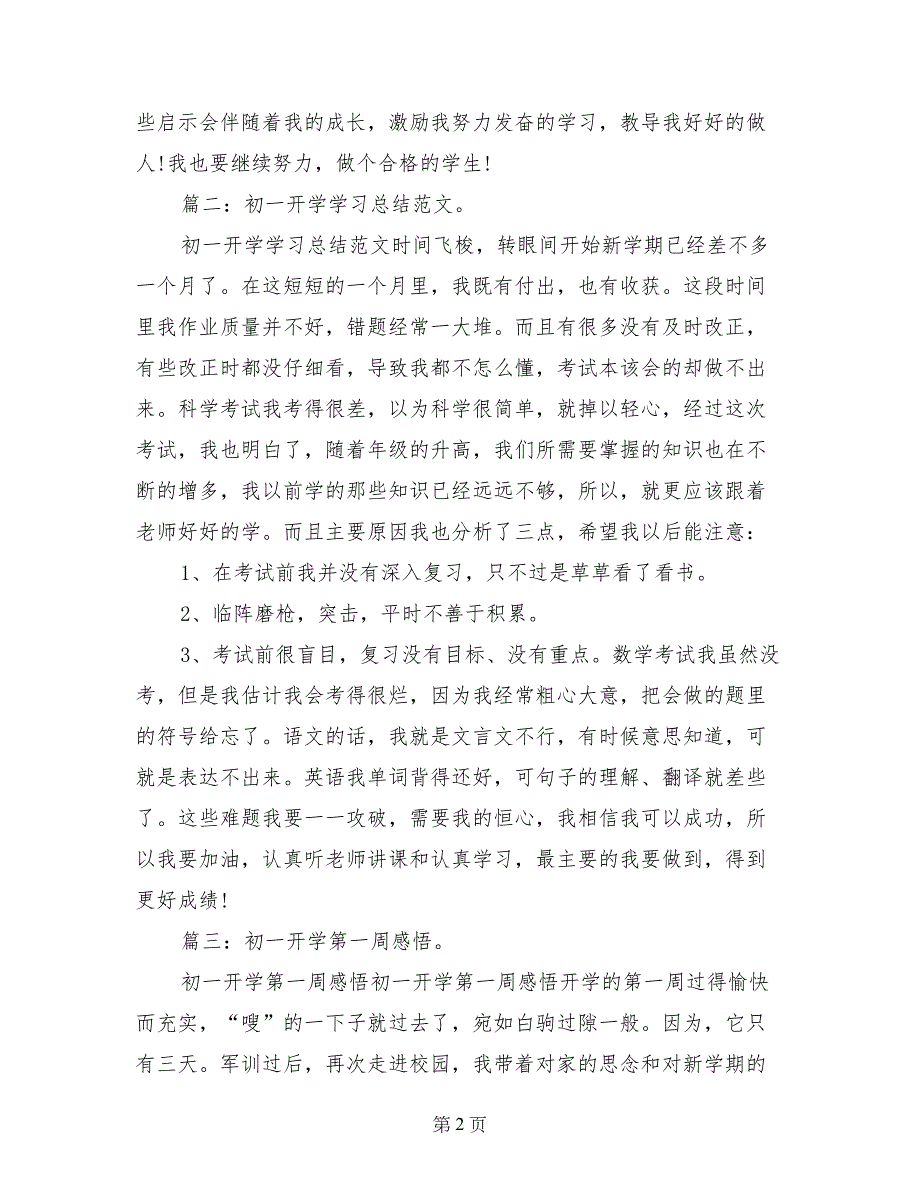 些启示会伴随着我的成长，激励我努力发奋的学习，教导我好好的做
人!我也要继续努力，做个合格的学生!
篇二：初一开学学习总结范文。
初一开学学习总结范文时间飞梭，转眼间开始新学期已经差不多
一个月了。在这短短的一个月里，我既有付出，也有收获。这段时间
里我作业质量并不好，错题经常一大堆。而且有很多没有及时改正，
有些改正时都没仔细看，导致我都不怎么懂，考试本该会的却做不出
来。科学考试我考得很差，以为科学很简单，就掉以轻心，经过这次
考试，我也明白了，随着年级的升高，我们所需要掌握的知识也在不
断的增多，我以前学的那些知识已经远远不够，所以，就更应该跟着
老师好好的学。而且主要原因我也分析了三点，希望我以后能注意：
1、在考试前我并没有深入复习，只不过是草草看了看书。
2、临阵磨枪，突击，平时不善于积累。
3、考试前很盲目，复习没有目标、没有重点。数学考试我虽然没
考，但是我估计我会考得很烂，因为我经常粗心大意，把会做的题里
的符号给忘了。语文的话，我就是文言文不行，有时候意思知道，可
就是表达不出来。英语我单词背得还好，可句子的理解、翻译就差些
了。这些难题我要一一攻破，需要我的恒心，我相信我可以成功，所
以我要加油，认真听老师讲课和认真学习，最主要的我要做到，得到
更好成绩!
篇三：初一开学第一周感悟。
初一开学第一周感悟初一开学第一周感悟开学的第一周过得愉快
而充实，“嗖”的一下子就过去了，宛如白驹过隙一般。因为，它只
有三天。军训过后，再次走进校园，我带着对家的思念和对新学期的
第 2 页